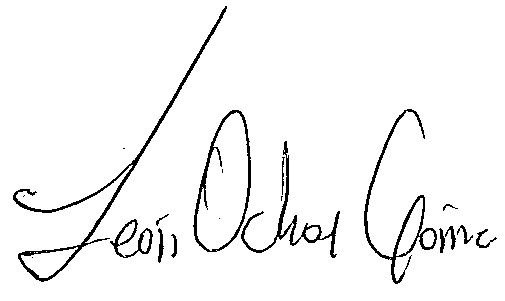 León Ochoa Góme